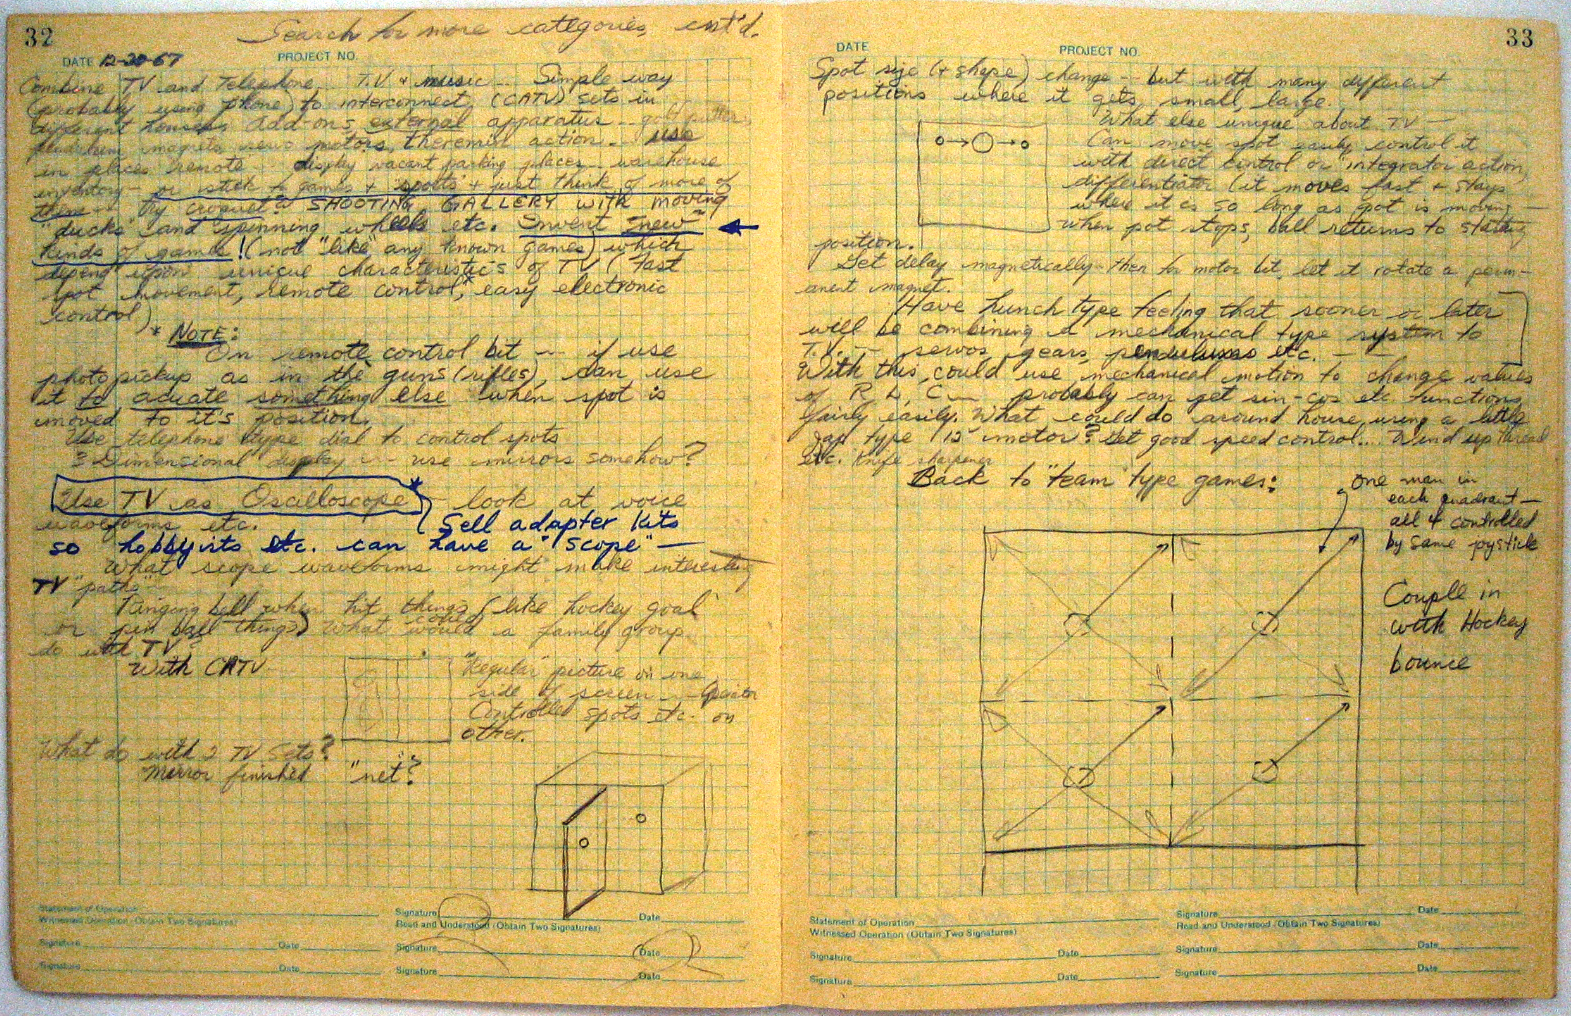 32
Search for more categories, cont'd.
DATE 12-20-67
PROJECT NO.
Combine TV and Telephone... T.V + music... Simple way
(probably using phone) to interconnect (CATV) sets in
different houses. Add-ons, external apparatus... golf putter,
pendulum magnets servo motors, theremin action. Use
in places remote display vacant parking places... warehouse
inventory - or stick to games + "sports" + just think of more of
them - try croquet? SHOOTING GALLERY with moving
"ducks" and spinning wheels etc. Invent "new"
kinds of game! (not "like" any known games) which
depend upon unique characteristics of TV (fast
spot movement, remote control,* easy electronic
control)
* NOTE:
On remote control bit -- if use
photo pickup as in the guns (rifles), can use
it to actuate something else when spot is
moved to it's position.
Use telephone type dial to control spots
3 Dimensional display -- use mirrors somehow?
Use TV as Oscilloscope* - look at voice
waveforms etc.
Sell adapter kits
so hobbyists etc. can have a "scope" —
What scope waveforms might make interesting
TV "paths"
Ringing bell when hit things (like hockey goal
or pin ball things) What could would a family group
do with TV?
With CATV
"Regular" picture on one
side of screen -- Operator
Controlled spots etc. on
other.
What do with 2 TV Sets?
Mirror finished "net"?
Statement of Operation
Witnessed Operation (Obtain Two Signatures)
Signature Date
Signature Date
Signature Date
Read and Understood (Obtain Two Signatures)
Signature Date
Signature Date
33
DATE
PROJECT NO.
Spot size (+ shape) change -- but with many different
positions where it gets, small, large.
What else unique about TV —
Can move spot easily control it
with direct control or "integrator action,
differentiator (it moves fast + stays
where it is so long as pot is moving —
when pot stops, ball returns to starting
position.
Get delay magnetically - then for motor bit, let it rotate a perm-
anent magnet.
Have hunch type feeling that sooner or later
will be combining a mechanical type system to
T.V. -- servos, gears, pendulums etc. —
With this, could use mechanical motion to change values
of R, L, C -- probably can get sin-cos etc functions
fairly easily. What could do around house using a little
Jap type 12 motor? Get good speed control... Wind up thread
etc. Knife sharpener
Back to "team" type games:
one man in
each quadrant —
all 4 controlled
by same joystick
Couple in
with Hockey
bounce
Statement of Operation
Witnessed Operation (Obtain Two Signatures)
Signature Date
Signature Date
Signature Date
Read and Understood (Obtain Two Signatures)
Signature Date
Signature Date